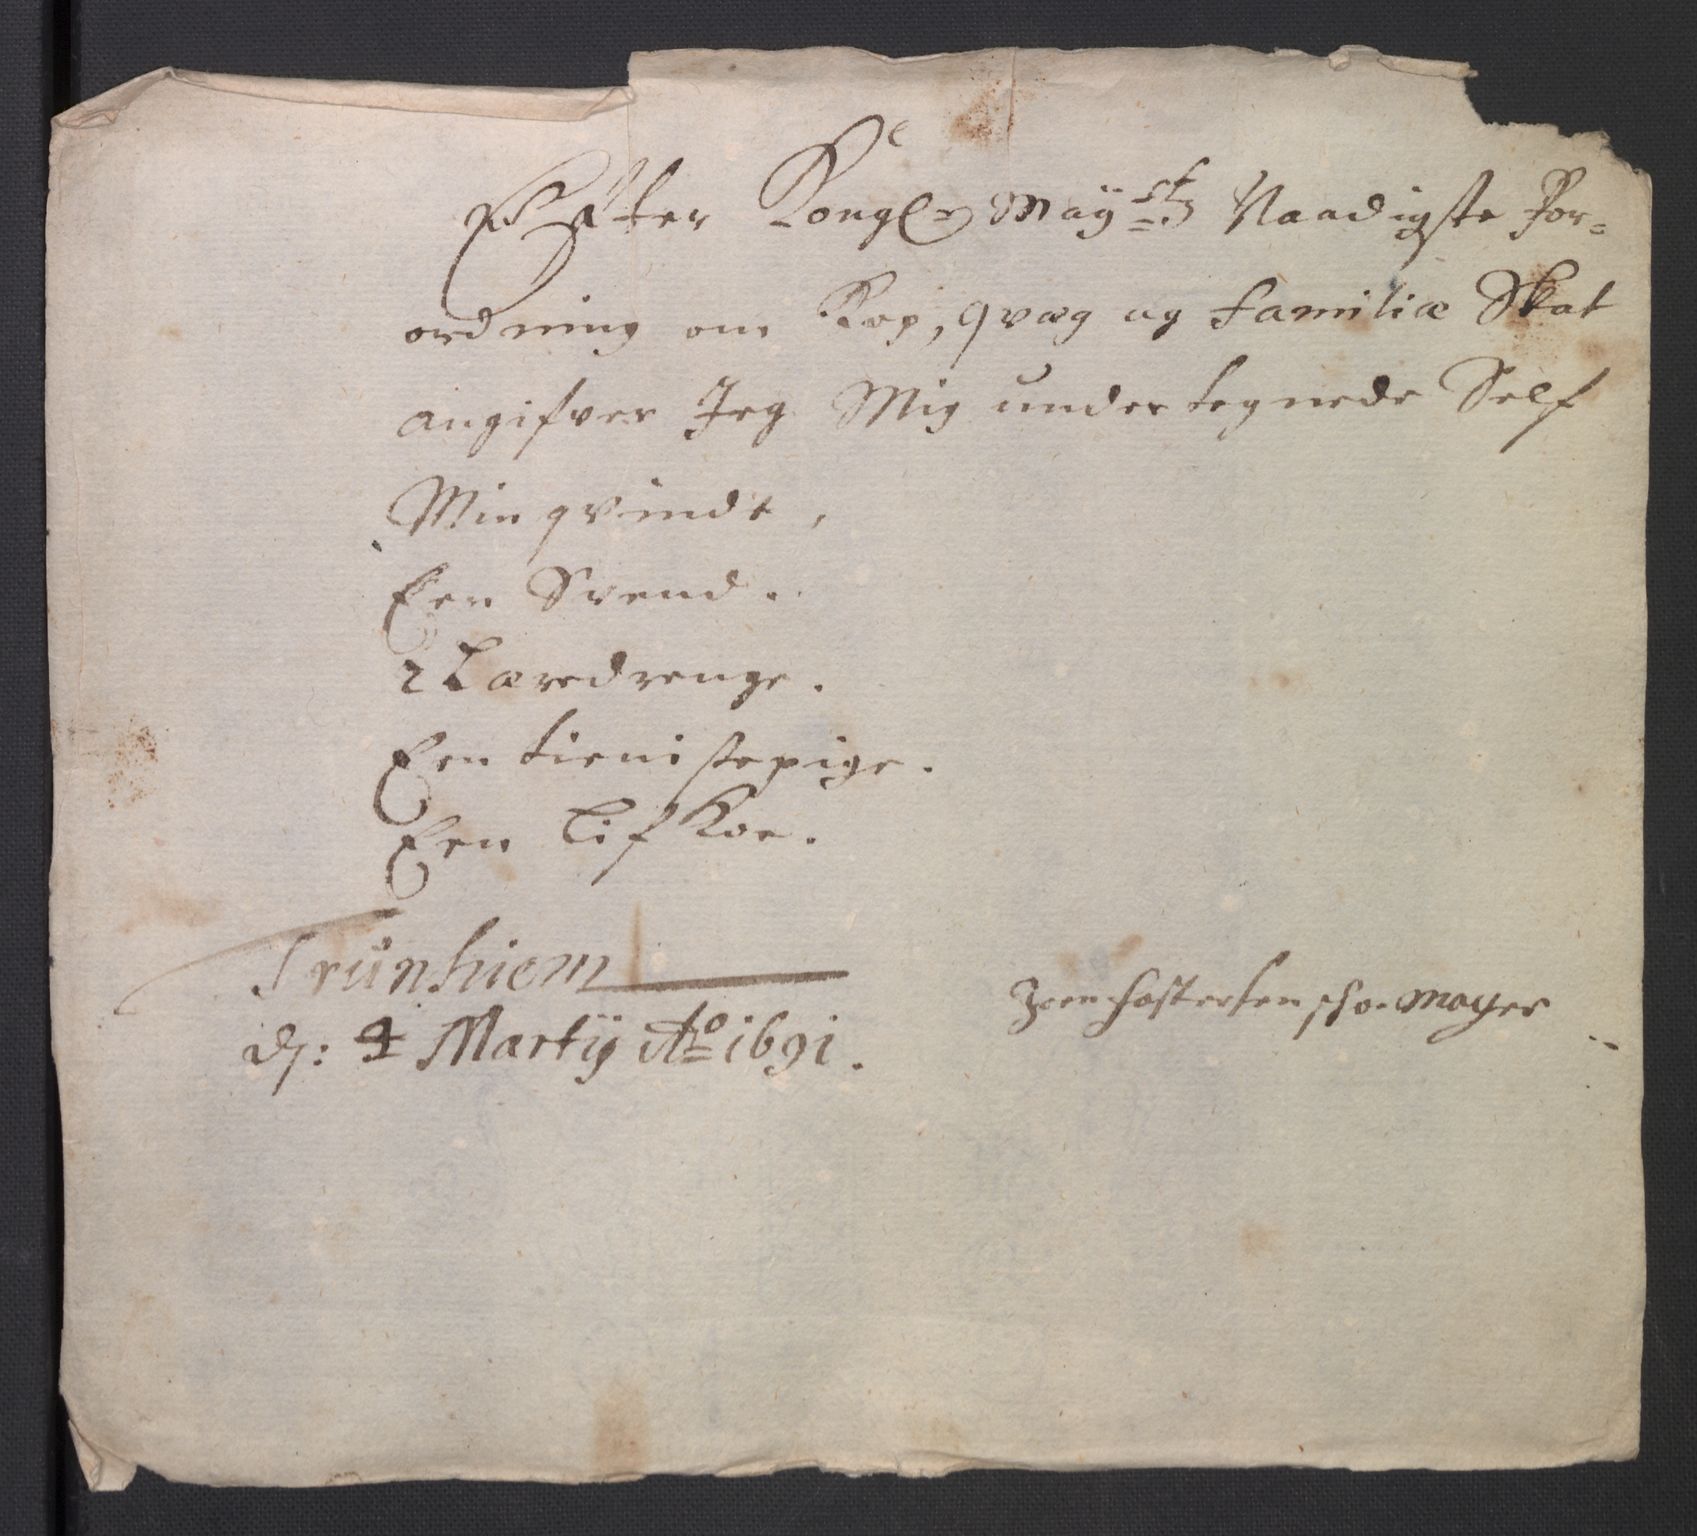 Efter Kongl: Mayst: Naadigste For=
ordning om Kop, qvæg og familiæ Skat
angifver Jeg Mig undertegnede Self
Min qvinde,
Een Svend.
2 Læredrenge.
Een tienistepige.
Een lif Koe.
Trünhiem
d: 4 Martij Ao 1691.
Mayer